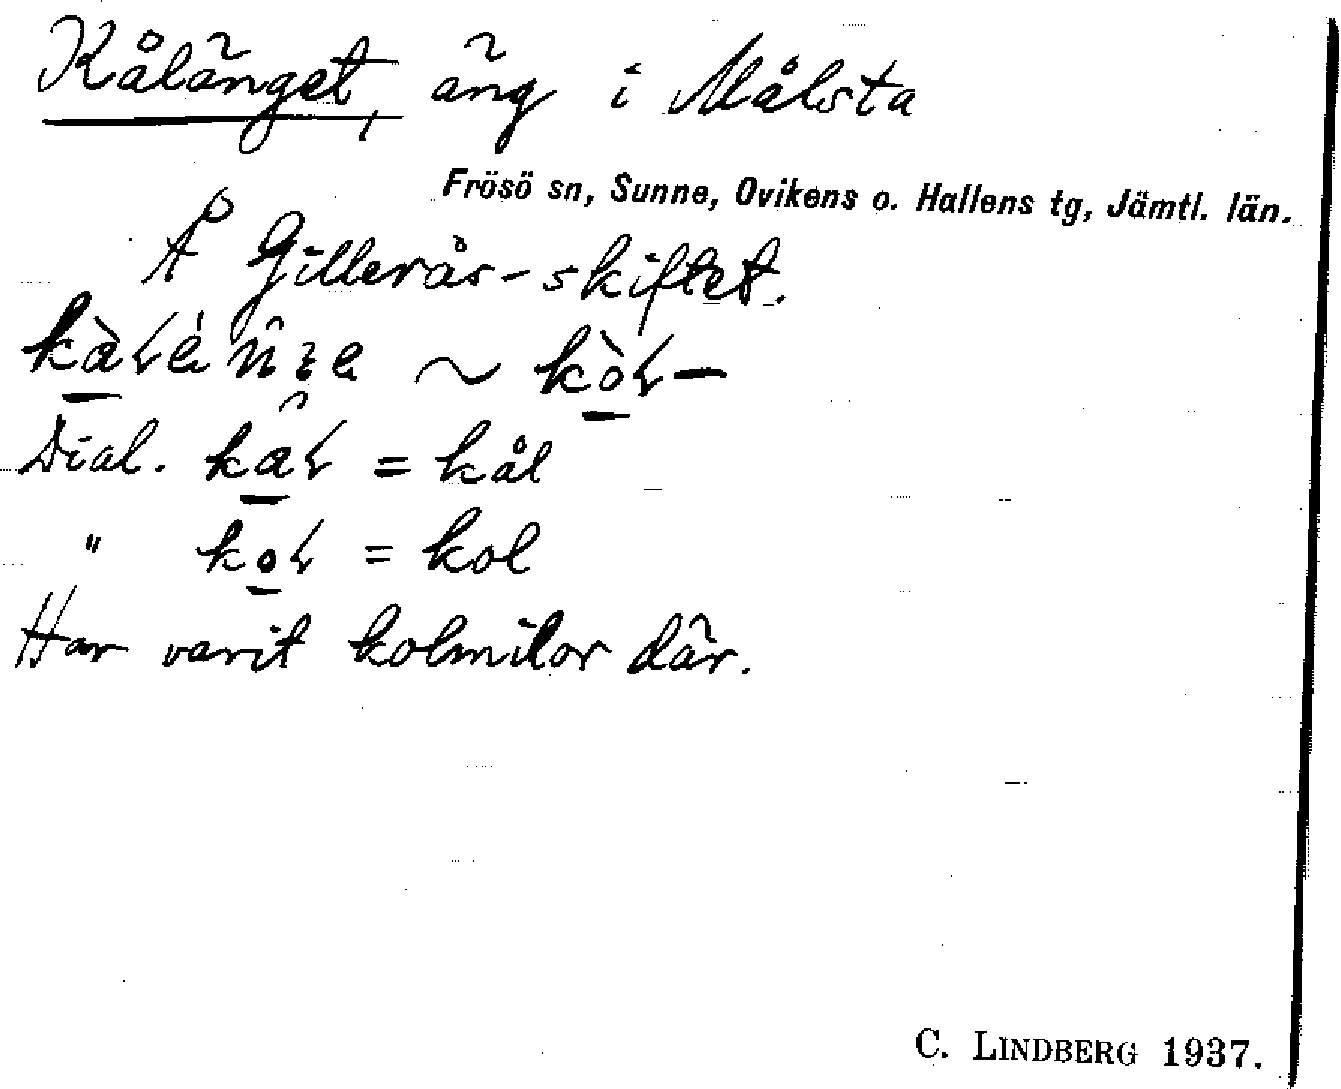 Kålänget, äng i Målsta
Frösö sn, Sunne, Ovikens o. Hallens tg, Jämtl. län.
Å Gillerås-skiftet.
Dial. = kål
" = kol
Har varit kolmilor där.
C. LINDBERG 1937.